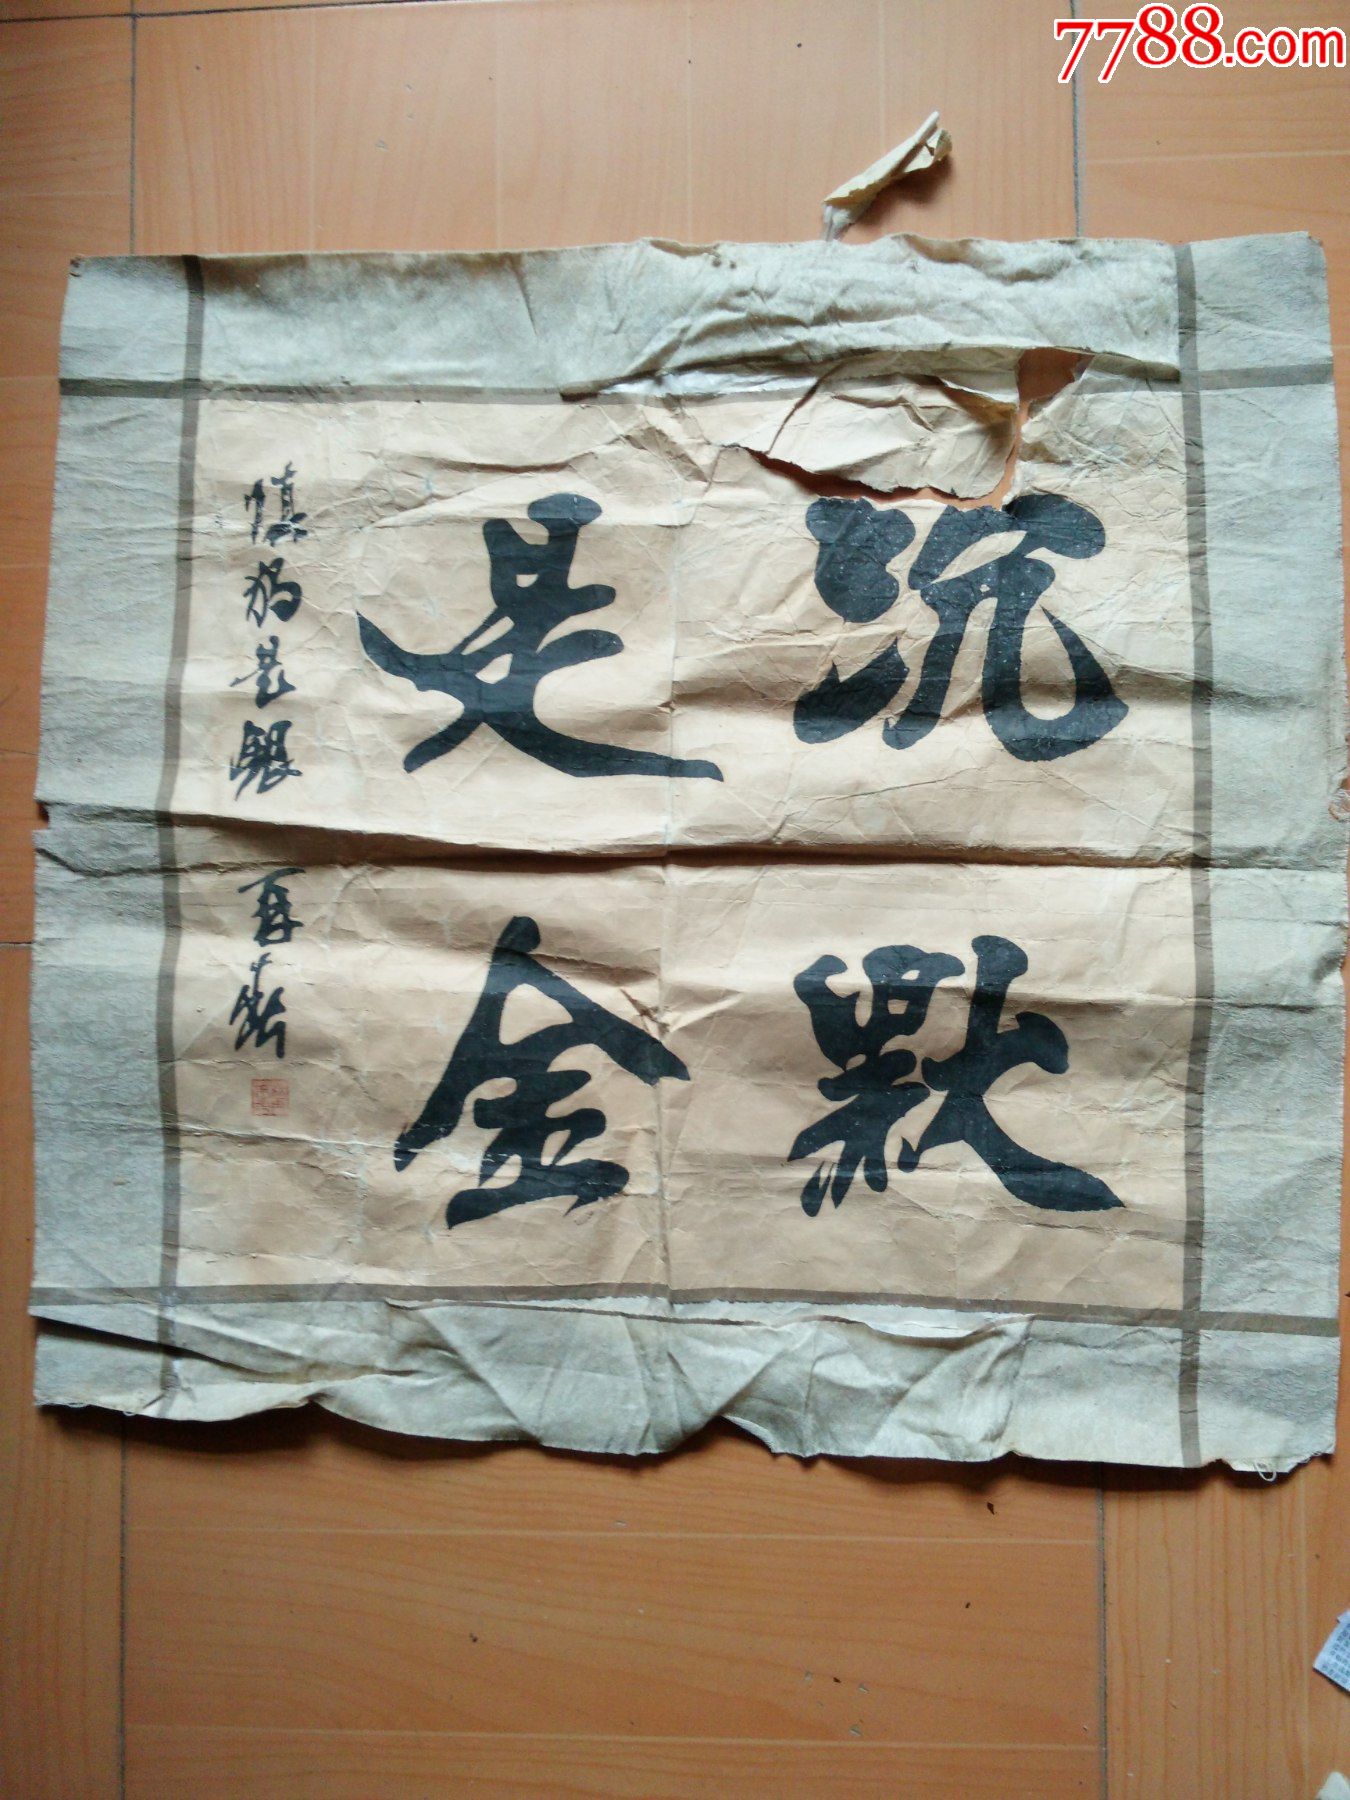 7788.com
沉默
是金
慎独是银